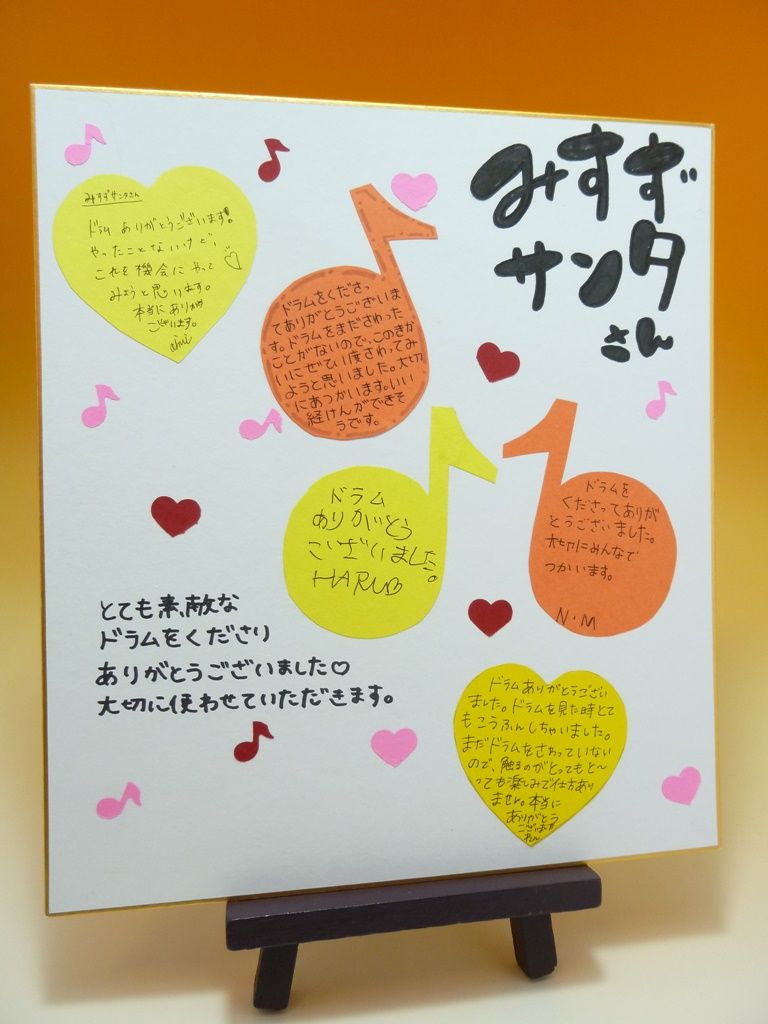 みすず
サンタ
さん
みすずサンタさん
ドラム ありがとうございます!
やったことないけど、
これを機会に やって
みようと思います。
本当に ありがとう
ございます。
aimi
ドラムをくださっ
てありがとうございま
す。ドラムをまださわった
ことがないので、このきか
いにぜひ1度さわってみ
ようと思いました。大切
にあつかいます。いい
経けんができそ
うです。
ドラム
ありがとう
ございました。
HARU
ドラムを
くださってありが
とうございました。
大切にみんなで
つかいます。
N・M
とても素敵な
ドラムをくださり
ありがとうございました♡
大切に使わせていただきます。
ドラムありがとうござい
ました。ドラムを見た時とて
もこうふんしちゃいました。
まだドラムをさわっていない
ので、触るのがとってもと〜
っても楽しみで仕方あり
ません。本当に
ありがとう
ございます